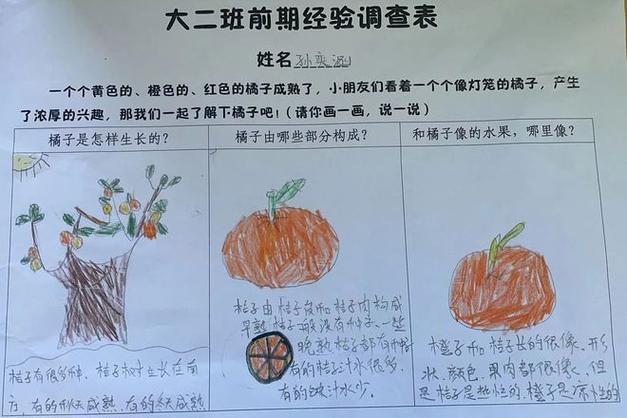 大二班前期经验调查表
姓名 孙奕
一个个黄色的、橙色的、红色的橘子成熟了，小朋友们看着一个个像灯笼的橘子，产生
了浓厚的兴趣，那我们一起了解下橘子吧！（请你画一画，说一说）
橘子是怎样生长的？
桔子有很多种、桔子树生长在南
方、有的秋天成熟、有的冬天成熟
橘子由哪些部分构成？
桔子由桔子皮和桔子肉构成
早熟桔子一般没有种子、一些
晚熟桔子都有种子
有的桔子汁水很多，
有的汁水少。
和橘子像的水果，哪里像？
橙子和桔子长的很像、形
状、颜色、果肉都很像、但
是桔子是热性的、橙子是凉性的